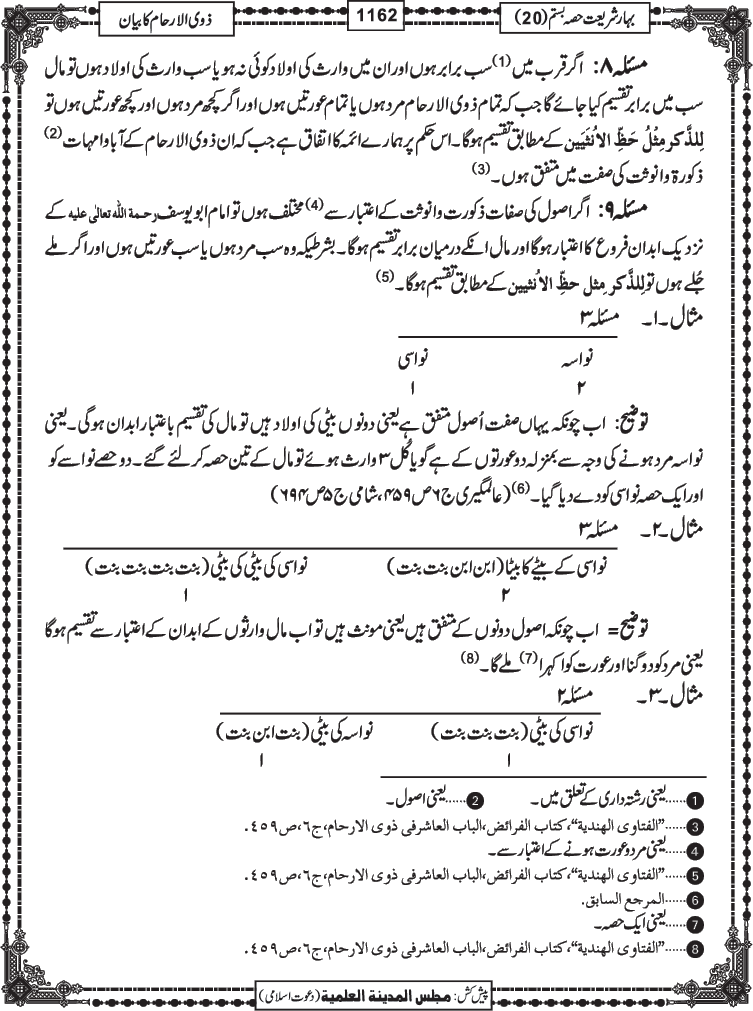 بہار شریعت حصہ بستم (20)
1162
ذوی الارحام کا بیان
مسئلہ ۸: اگر قرب میں (1) سب برابر ہوں اور ان میں وارث کی اولاد کوئی نہ ہو یا سب وارث کی اولاد ہوں تو مال
سب میں برابر تقسیم کیا جائے گا جب کہ تمام ذوی الارحام مرد ہوں یا تمام عورتیں ہوں اور اگر کچھ مرد ہوں اور کچھ عورتیں ہوں تو
لِلذَّكرِ مِثْلُ حَظِّ الاُنثَيَين کے مطابق تقسیم ہوگا۔ اس حکم پر ہمارے ائمہ کا اتفاق ہے جب کہ ان ذوی الارحام کے آبا و امہات (2)
ذکورۃ و انوثت کی صفت میں متفق ہوں۔ (3)
مسئلہ ۹: اگر اصول کی صفات ذکورت و انوثت کے اعتبار سے (4) مختلف ہوں تو امام ابو یوسف رحمة الله تعالى عليه کے
نزدیک ابدان فروع کا اعتبار ہوگا اور مال انکے درمیان برابر تقسیم ہوگا۔ بشرطیکہ وہ سب مرد ہوں یا سب عورتیں ہوں اور اگر ملے
جُلے ہوں تو لِلذَّكرِ مِثل حظِّ الاُنثيين کے مطابق تقسیم ہوگا۔ (5)
مثال ۔۱۔ مسئلہ ۳
نواسہ نواسی
۲ ۱
توضیح: اب چونکہ یہاں صفت اُصول متفق ہے یعنی دونوں بیٹی کی اولاد ہیں تو مال کی تقسیم باعتبار ابدان ہوگی۔ یعنی
نواسہ مرد ہونے کی وجہ سے بمنزلہ دو عورتوں کے ہے گویا کُل ۳ وارث ہوئے تو مال کے تین حصہ کر لئے گئے۔ دو حصے نواسے کو
اور ایک حصہ نواسی کو دے دیا گیا۔ (6) (عالمگیری ج۶ ص۴۵۹، شامی ج۵ ص۶۹۴)
مثال ۔۲۔ مسئلہ ۳
نواسی کے بیٹے کا بیٹا (ابن ابن بنت بنت) نواسی کی بیٹی کی بیٹی (بنت بنت بنت بنت)
۲ ۱
توضیح= اب چونکہ اصول دونوں کے متفق ہیں یعنی مونث ہیں تو اب مال وارثوں کے ابدان کے اعتبار سے تقسیم ہوگا
یعنی مرد کو دوگنا اور عورت کو اکہرا (7) ملے گا۔ (8)
مثال ۔۳۔ مسئلہ ۲
نواسی کی بیٹی (بنت بنت بنت) نواسہ کی بیٹی (بنت ابن بنت)
۱ ۱
1 ......یعنی رشتہ داری کے تعلق میں۔ 2 ......یعنی اصول۔
3 ......"الفتاوى الهندية"، كتاب الفرائض، الباب العاشرفى ذوى الارحام، ج٦، ص٤٥٩.
4 ......یعنی مرد و عورت ہونے کے اعتبار سے۔
5 ......"الفتاوى الهندية"، كتاب الفرائض، الباب العاشرفى ذوى الارحام، ج٦، ص٤٥٩.
6 ......المرجع السابق.
7 ......یعنی ایک حصہ۔
8 ......"الفتاوى الهندية"، كتاب الفرائض، الباب العاشرفى ذوى الارحام، ج٦، ص٤٥٩.
پیش کش: مجلس المدینۃ العلمیۃ (دعوت اسلامی)